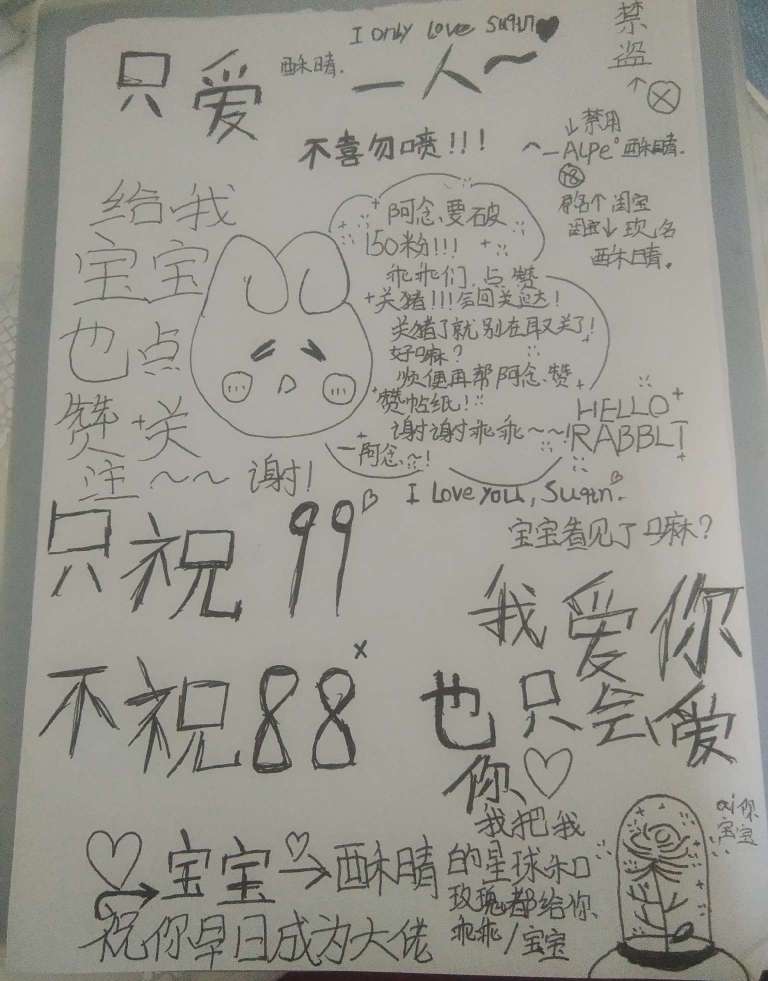 I only love Suqin
只爱酥晴.一人~
禁盗
↑ⓧ
不喜勿喷!!!
↓禁用
^—ALPe°酥晴.
原名个闺宝
闺宝↓现名
酥晴.
给我
宝宝
也点
赞+关
注~~谢!
阿念.要破
150粉!!!
乖乖们.点赞
+关猪!!!会回关哒!
关猪了就别在取关了!
好嘛?
顺便再帮阿念.赞
赞帖纸!
谢谢乖乖~~!
—阿念~!
HELLO
RABBLT
I Love you, Suqin.
宝宝看见了口麻?
只祝99
不祝88
我爱你
也只会爱
你♡
♡→宝宝♡→酥晴
祝你早日成为大佬
我把我
的星球和
玫瑰都给你
乖乖/宝宝
ai你
宝宝